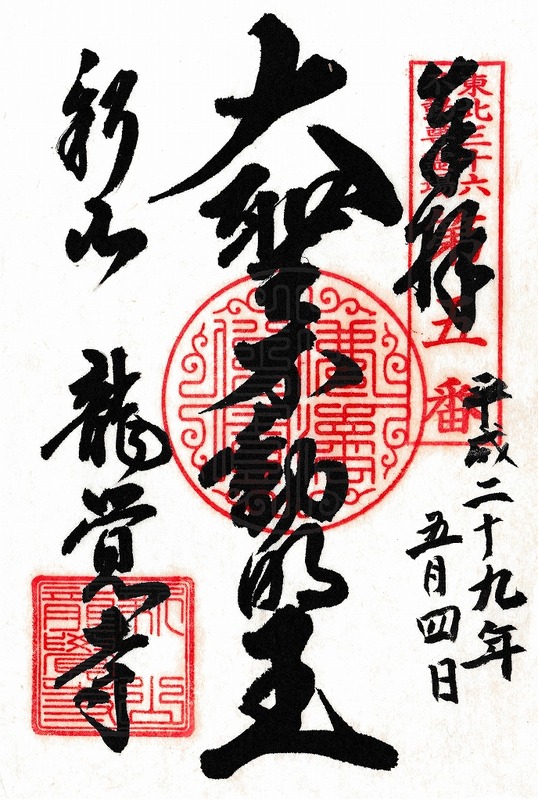 東北三十六
不動尊霊場
第五番
奉拝
平成二十九年
五月四日
大聖不動明王
新山 龍覚寺
新山
龍覺寺